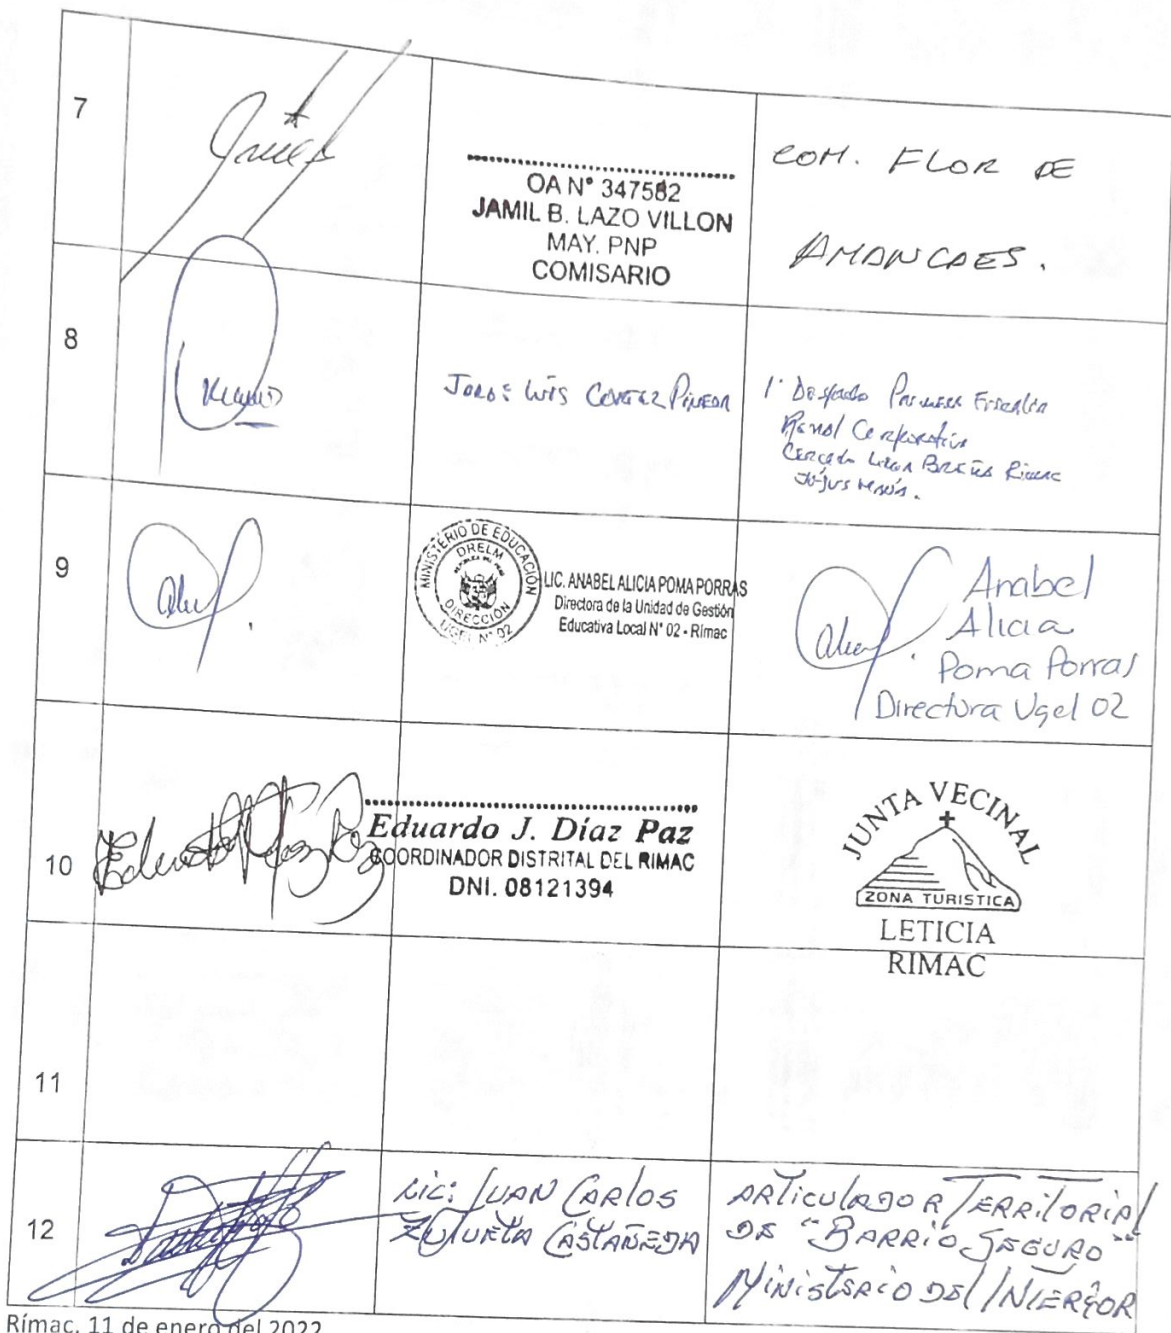 7
OA N° 347582
JAMIL B. LAZO VILLON
MAY. PNP
COMISARIO
COM. FLOR DE
AMANCAES.
8
Luis
1° Despacho
Penal Corporativa
Cercado Lima Breña Rimac
Jesús María.
9
MINISTERIO DE EDUCACIÓN
DRELM
DIRECCIÓN
UGEL N° 02
LIC. ANABEL ALICIA POMA PORRAS
Directora de la Unidad de Gestión
Educativa Local N° 02 - Rímac
Anabel
Alicia
Poma Porras
Directora Ugel 02
10
Eduardo J. Díaz Paz
COORDINADOR DISTRITAL DEL RIMAC
DNI. 08121394
JUNTA VECINAL
ZONA TURISTICA
LETICIA
RIMAC
11
12
Lic: JUAN CARLOS
ZULUETA CASTAÑEDA
ARTICULADOR TERRITORIAL
DE "BARRIO SEGURO"
MINISTERIO DEL INTERIOR
Rímac, 11 de enero del 2022